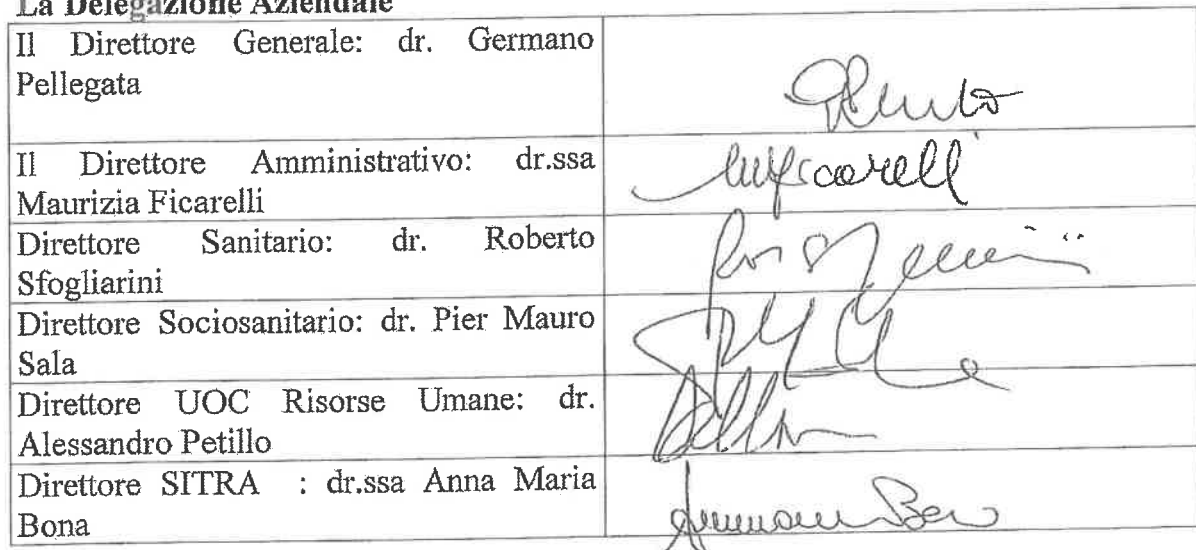 La Delegazione Aziendale
Il Direttore Generale: dr. Germano
Pellegata
Il Direttore Amministrativo: dr.ssa
Maurizia Ficarelli
Direttore Sanitario: dr. Roberto
Sfogliarini
Direttore Sociosanitario: dr. Pier Mauro
Sala
Direttore UOC Risorse Umane: dr.
Alessandro Petillo
Direttore SITRA : dr.ssa Anna Maria
Bona